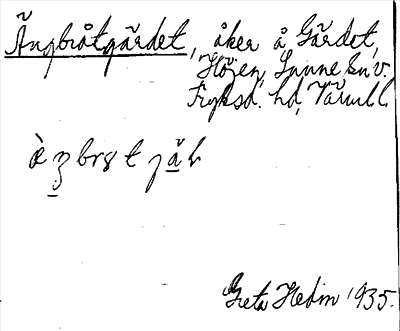 Ängbråtgärdet, åker å Gärdet,
Höjen, Sunne sn v.
Fryksd. hd, Värml.
Greta Hedin 1935.